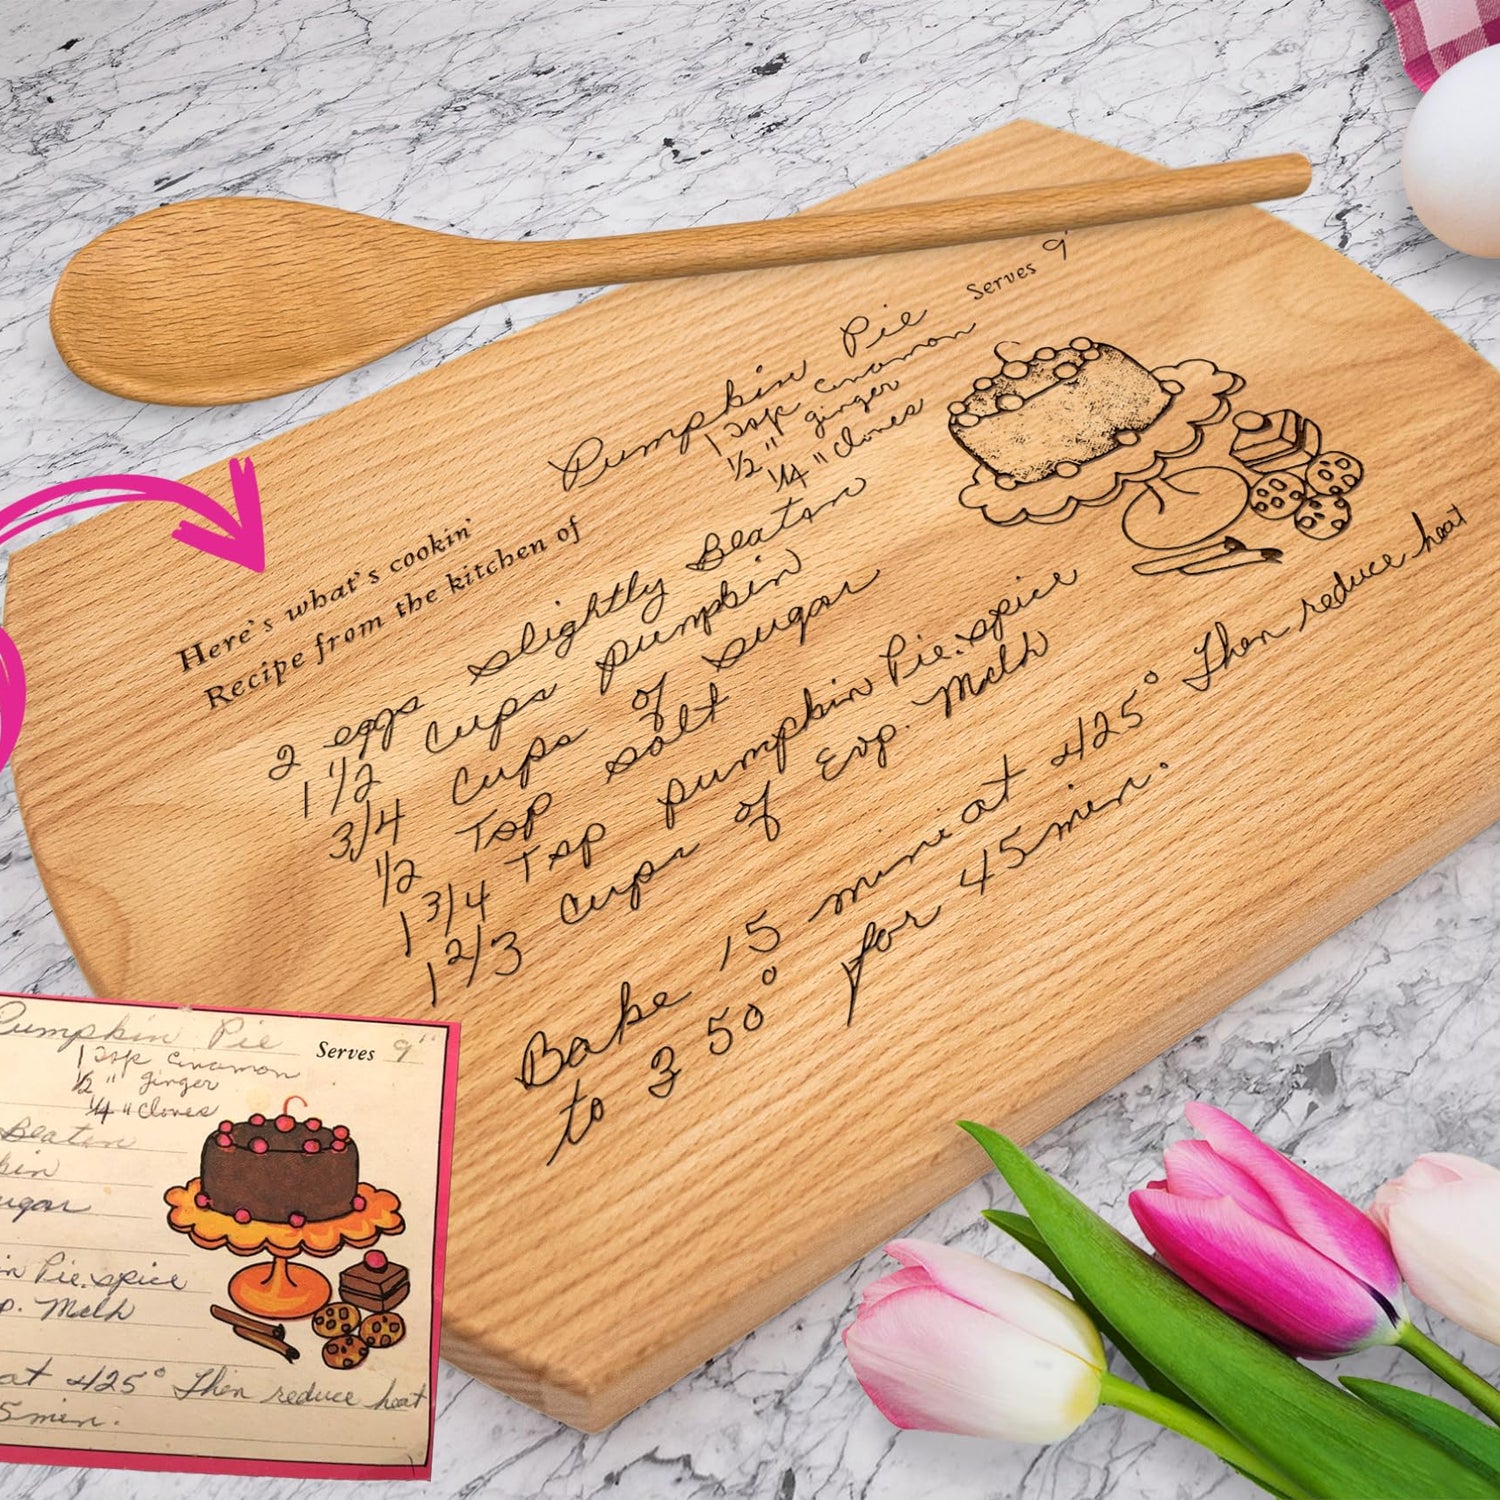 Serves 9"
Pumpkin Pie
1 Tsp cinamon
1/2 " ginger
1/4 " Cloves
Here's what's cookin'
Recipe from the kitchen of
2 eggs slightly Beaten
1 1/2 Cups pumpkin
3/4 Cups of sugar
1/2 Tsp salt
1 3/4 Tsp pumpkin Pie.spice
1 2/3 Cups of Evp. Melh
Bake 15 min at 425° Then reduce heat
to 350° for 45 min.
Pumpkin Pie Serves 9"
1 Tsp cinamon
1/2 " ginger
1/4 " Cloves
Beaten
kin
ugar
in Pie.spice
p. Melh
at 425° Then reduce heat
5 min.